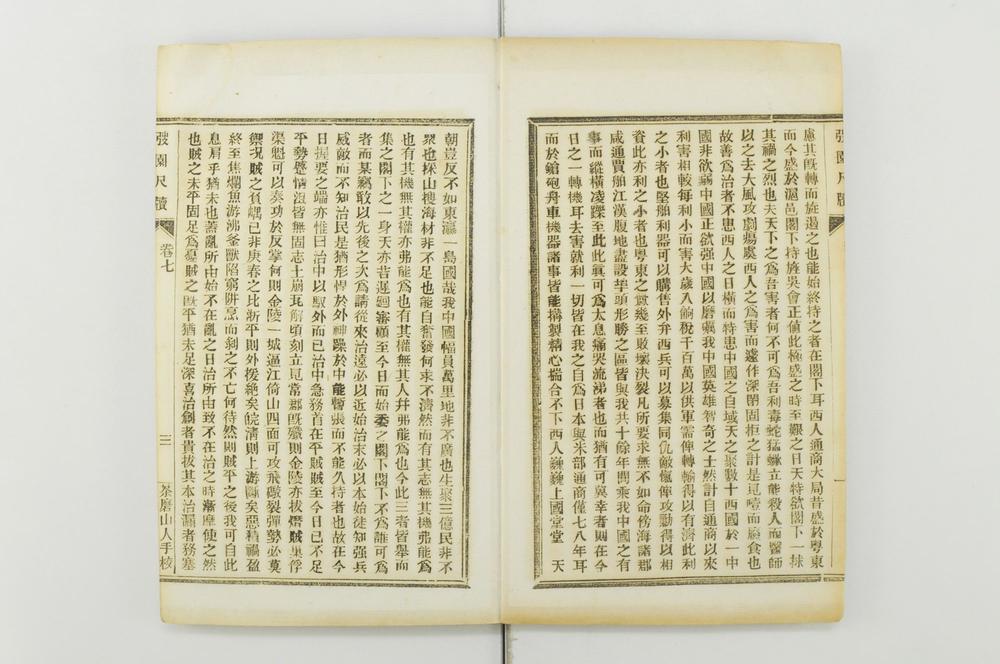 弢園尺牘
慮其旣轉而旋遏之也能始終持之者在閣下耳西人通商大局昔盛於粵東
而今盛於滬邑閣下持旌吳會正值此極盛之時至艱之日天特欲閣下一拯
其禍之烈也夫天下之爲吾害者何不可爲吾利毒蛇猛蝎立能殺人而醫師
以之去大風攻劇瘍處西人之爲害而遽作深閉固拒之計是見噎而廢食也
故善爲治者不患西人之日橫而特患中國之自域天之聚數十西國於一中
國非欲弱中國正欲强中國以磨礪我中國英雄智奇之士然計自通商以來
利害相較每利小而害大歲入餉稅千百萬以供軍需俾轉輸得以有濟此利
之小者也堅船利器可以購售外弁西兵可以募集同仇敵愾俾攻勦得以相
資此亦利之小者也粵東之釁幾至敗壞決裂凡所要求無不如命傍海諸郡
咸通賈舶江漢腹地盡設埠頭形勝之區皆與我共十餘年間乘我中國之有
事而縱橫凌躒至此此眞可爲太息痛哭流涕者也而猶有可冀幸者則在今
日之一轉機耳去害就利一切皆在我之自爲日本與米部通商僅七八年耳
而於鎗砲舟車機器諸事皆能搆製精心揣合不下西人巍巍上國堂堂 天
朝豈反不如東瀛一島國哉我中國幅員萬里地非不廣也生聚三億民非不
衆也採山搜海材非不足也能自奮發何求不濟然而有其志無其機弗能爲
也有其機無其權亦弗能爲也有其權無其人幷弗能爲也今此三者皆舉而
集之閣下之一身天亦昔遲迴審顧至今日而始委之閣下閣下不爲誰可爲
者而某竊敢以先後之次爲請從來治遠必以近始治末必以本始徒知强兵
威敵而不知治民是猶形悍於外神躁於中能暫張而不能久持者也故在今
日握要之端亦惟曰治中以馭外而已治中急務首在平賊賊至今日已不足
平勢蹙情沮皆無固志土崩瓦解頃刻立見常郡旣殲則金陵亦拔潛賊巢俘
渠魁可以奏功於反掌何則金陵一城逼江倚山四面可攻飛礮裂彈勢必莫
禦況賊之負嵎已非庚春之比浙平則外援絕矣皖淸則上游蹶矣惡積禍盈
終至焦爛魚游沸釜獸陷窮阱烹而剝之不亡何待然則賊平之後我可自此
息肩乎猶未也蓋亂所由始不在亂之日治所由致不在治之時漸摩使之然
也賊之未平固足爲憂賊之旣平猶未足深喜治創者貴拔其本治漏者務塞
弢園尺牘
卷七
三
茶磨山人手校